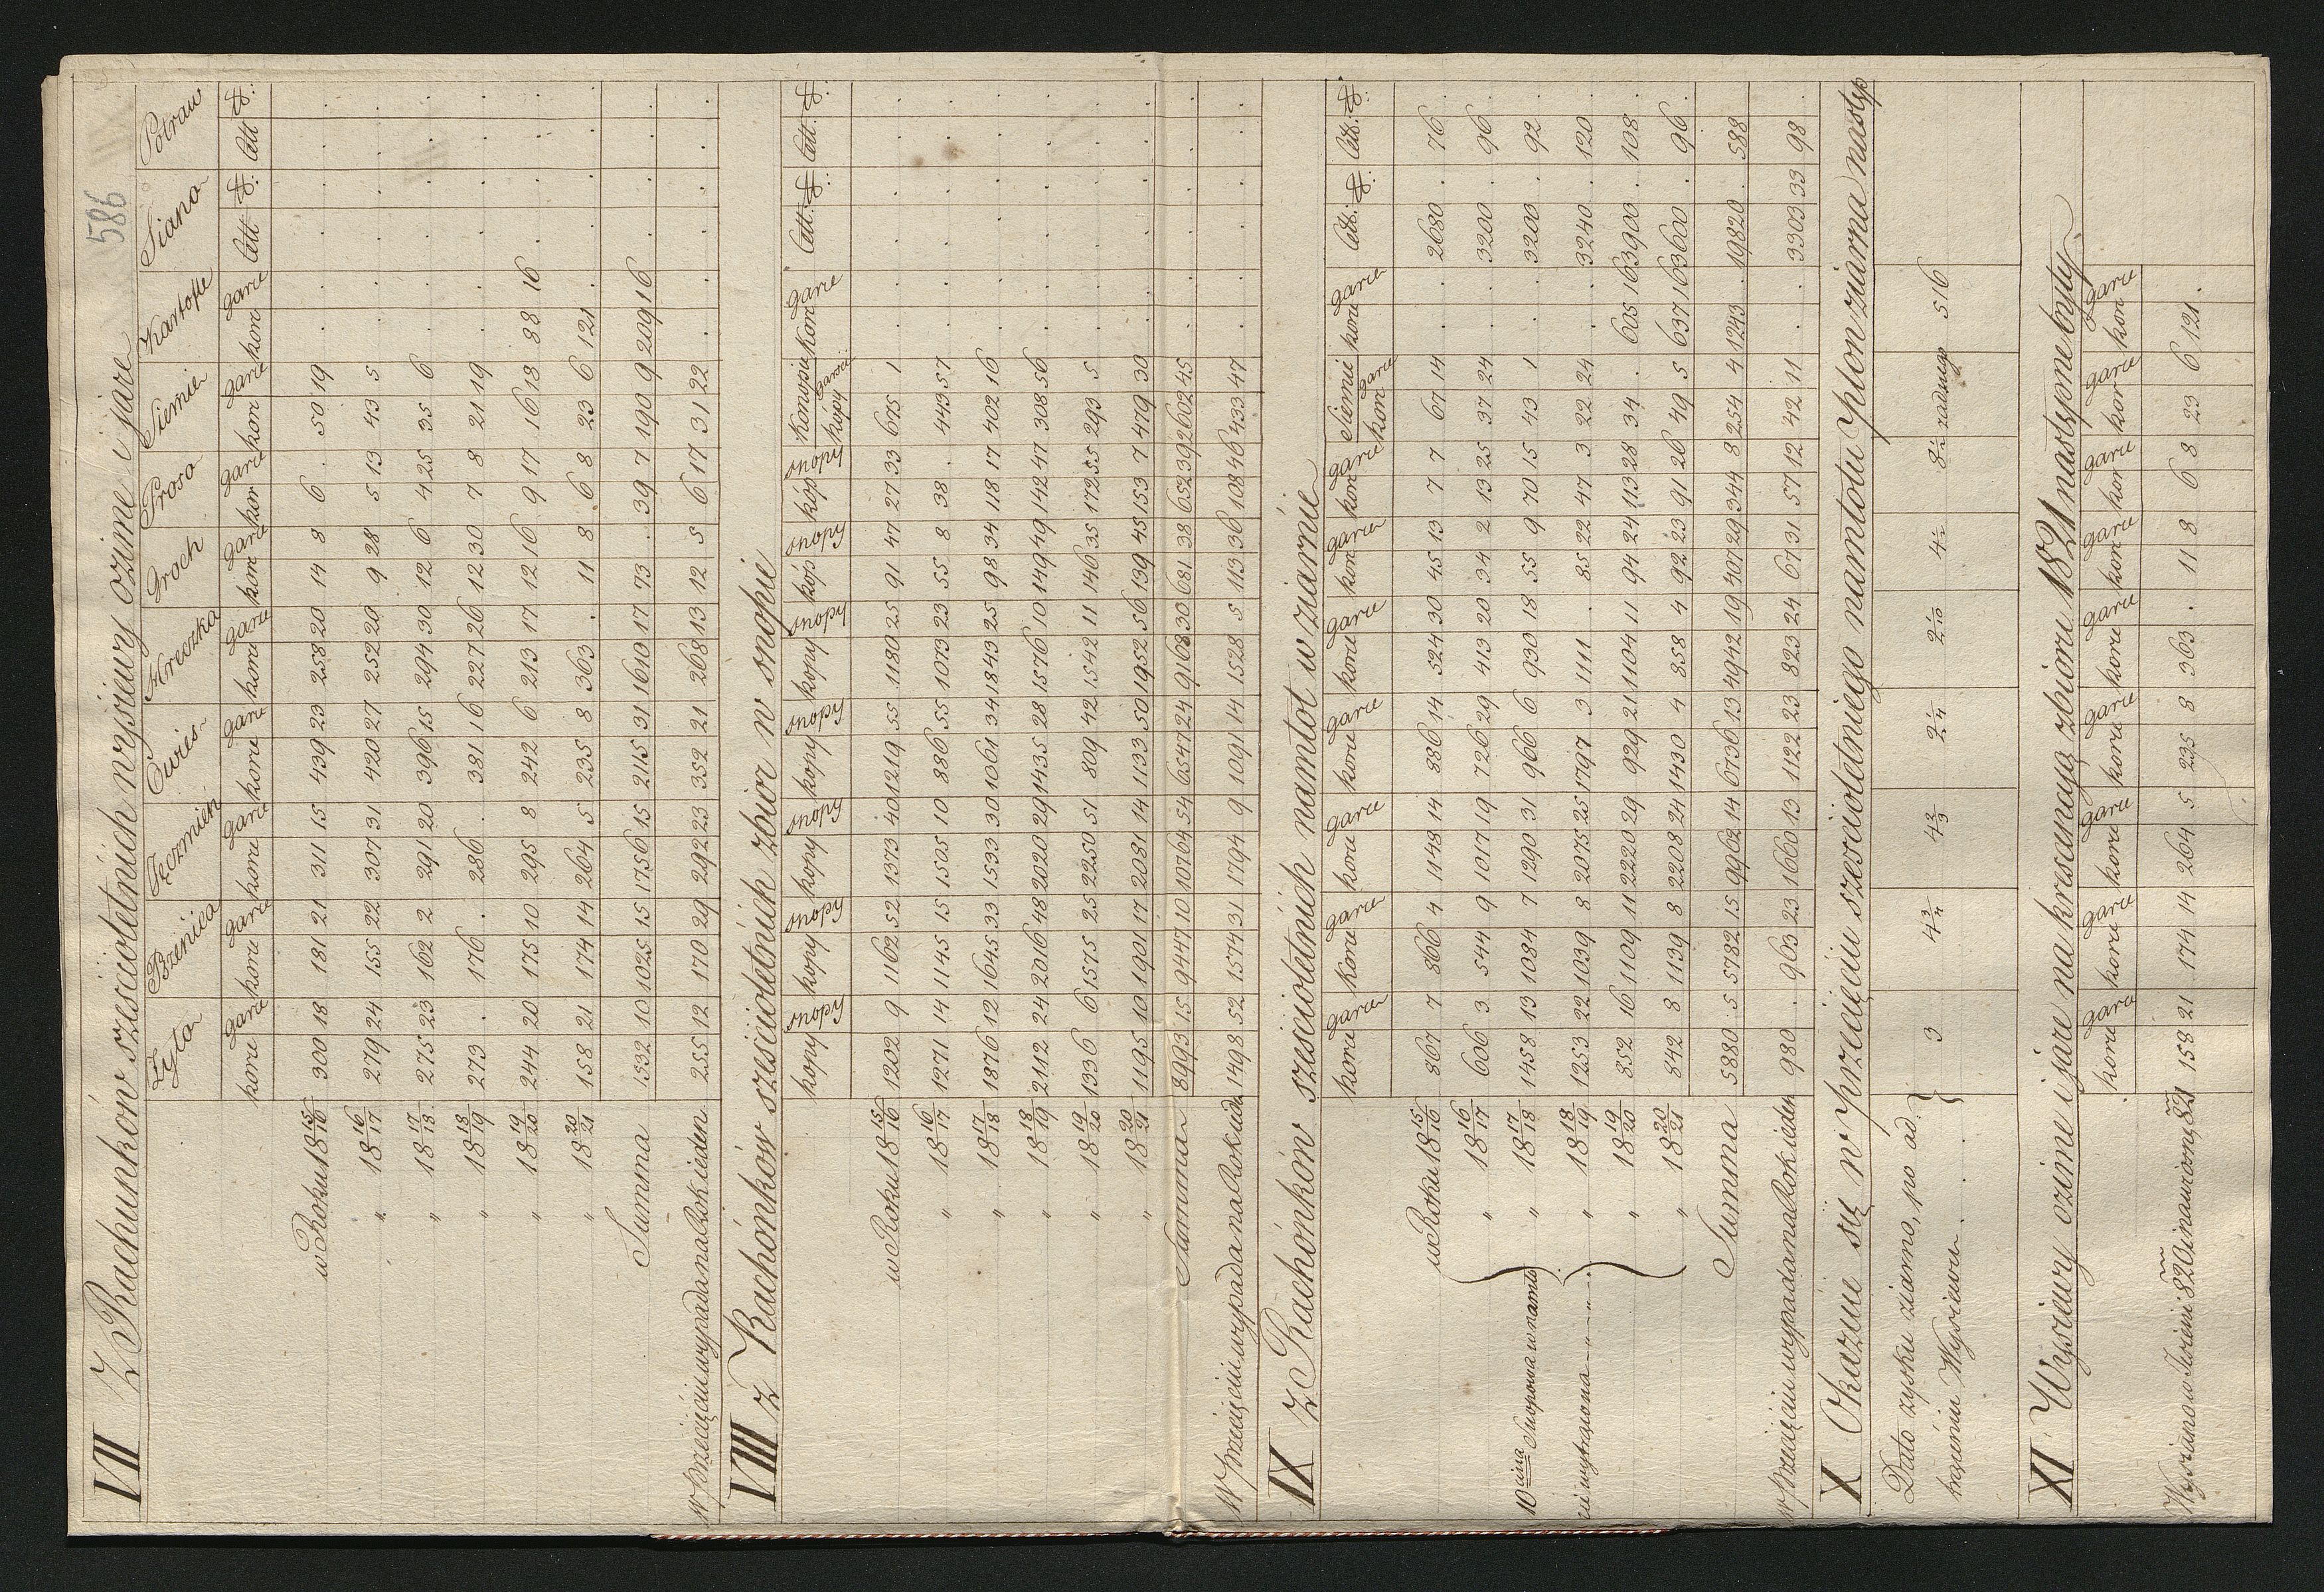 586
VII Z Rachunków sześcioletnich wysiewy ozime i jare
Żyto Pszenica Jęczmień Owies Hreczka Groch Proso Siemie Kartofle Siano Potraw
korce garce korce garce korce garce korce garce korce garce kor garce kor garce kor garce kor garce Cett ℔: Cett ℔:
w Roku 18 15/16 300 18 181 21 311 15 439 23 258 20 14 8 6 . 50 19 . . . . . .
" 18 16/17 279 24 155 22 307 31 420 27 252 20 9 28 5 13 43 5 . . . . . .
" 18 17/18 275 23 162 2 291 20 396 15 294 30 12 6 4 25 35 6 . . . . . .
" 18 18/19 273 . 176 . 286 . 381 16 227 26 12 30 7 8 21 19 . . . . . .
" 18 19/20 244 20 175 10 295 8 242 6 213 17 12 16 9 17 16 18 88 16 . . . .
" 18 20/21 158 21 174 14 264 5 235 8 363 . 11 8 6 8 23 6 121 . . . .
Summa 1532 10 1025 15 1756 15 2115 31 1610 17 73 . 39 7 190 9 209 16 . . . .
W przecięciu wypada na Rok ieden 255 12 170 29 292 23 352 21 268 13 12 5 6 17 31 22 . . . . .
VIII z Rachónków sześcioletnich zbior w snopie
kopy snopy kopy snopy kopy snopy kopy snopy kopy snopy kóp snopy kóp snopy konopie kópy garcie kor garce Cett. ℔: Cett. ℔:
w Roku 18 15/16 1202 9 1162 52 1373 40 1219 55 1180 25 91 47 27 33 675 1 . . . . . .
" 18 16/17 1271 14 1145 15 1505 10 886 55 1073 23 55 8 38 . 443 57 . . . . . .
" 18 17/18 1876 12 1645 33 1533 30 1061 34 1843 25 98 34 118 17 402 16 . . . . . .
" 18 18/19 2112 24 2016 48 2020 29 1435 28 1576 10 149 49 142 47 308 56 . . . . . .
" 18 19/20 1336 6 1575 25 2250 51 809 42 1542 11 146 35 172 55 293 5 . . . . . .
" 18 20/21 1195 10 1901 17 2081 14 1133 50 1952 56 139 45 153 7 479 30 . . . . . .
Summa 8993 15 9447 10 10764 54 6547 24 9168 30 681 38 652 39 2602 45 . . . . . .
W przecięciu wypada na Rok ieden 1498 52 1574 31 1794 9 1091 14 1528 5 113 36 108 46 433 47 . . . . . .
IX z Rachónków sześcioletnich namłot w ziarnie
korce garce korce garce korce garce korce garce korce garce kor garce kor garce Siemie kor garce korce garce Cett: ℔: Cett: ℔:
w Roku 18 15/16 867 7 866 4 1148 14 886 14 524 30 45 13 7 7 67 14 . . 2680 . 76 .
" 18 16/17 606 3 544 9 1017 19 726 29 413 20 34 2 13 25 37 24 . . 3200 . 96 .
10cina Snopowa w namło " 18 17/18 1458 13 1084 7 1290 31 966 6 930 18 55 9 70 15 43 1 . . 3200 . 92 .
cie wytrącona - " - " - " 18 18/19 1253 22 1039 8 2075 25 1797 3 1111 . 85 22 47 3 22 24 . . 3240 . 120 .
" 18 19/20 852 16 1109 11 2220 29 929 21 1104 11 94 24 113 28 34 . 605 16 3900 . 108 .
" 18 20/21 842 8 1139 8 2208 24 1430 4 858 4 92 23 91 26 49 5 637 16 3600 . 96 .
Summa 5880 5 5782 15 9962 14 6736 13 4942 19 407 29 344 8 254 4 1243 . 19820 . 588
w przecięciu wypada na Rok ieden 980 . 963 23 1660 13 1122 23 823 24 67 31 57 12 42 11 . . 3303 33 98 .
X Okazuie się w przecięciu sześcioletniego namłotu Plon ziarna następ
Dało zysku ziarno, po od
trąceniu Wysiewu . . . } 3 4 3/4 4 2/3 2 1/4 2 1/10 4 1/2 8 1/2 zadnego 5 16
XI Wysiewy ozime i jare na kresancyą zbioru 1821 nastąpne były
korce garce korce garce korce garce korce garce korce garce kor garce kor garce kor garce kor garce
Wysiano w Jesieni 820 i na wiosnę 821 158 21 174 14 264 5 235 8 363 . 11 8 6 8 23 6 121 .